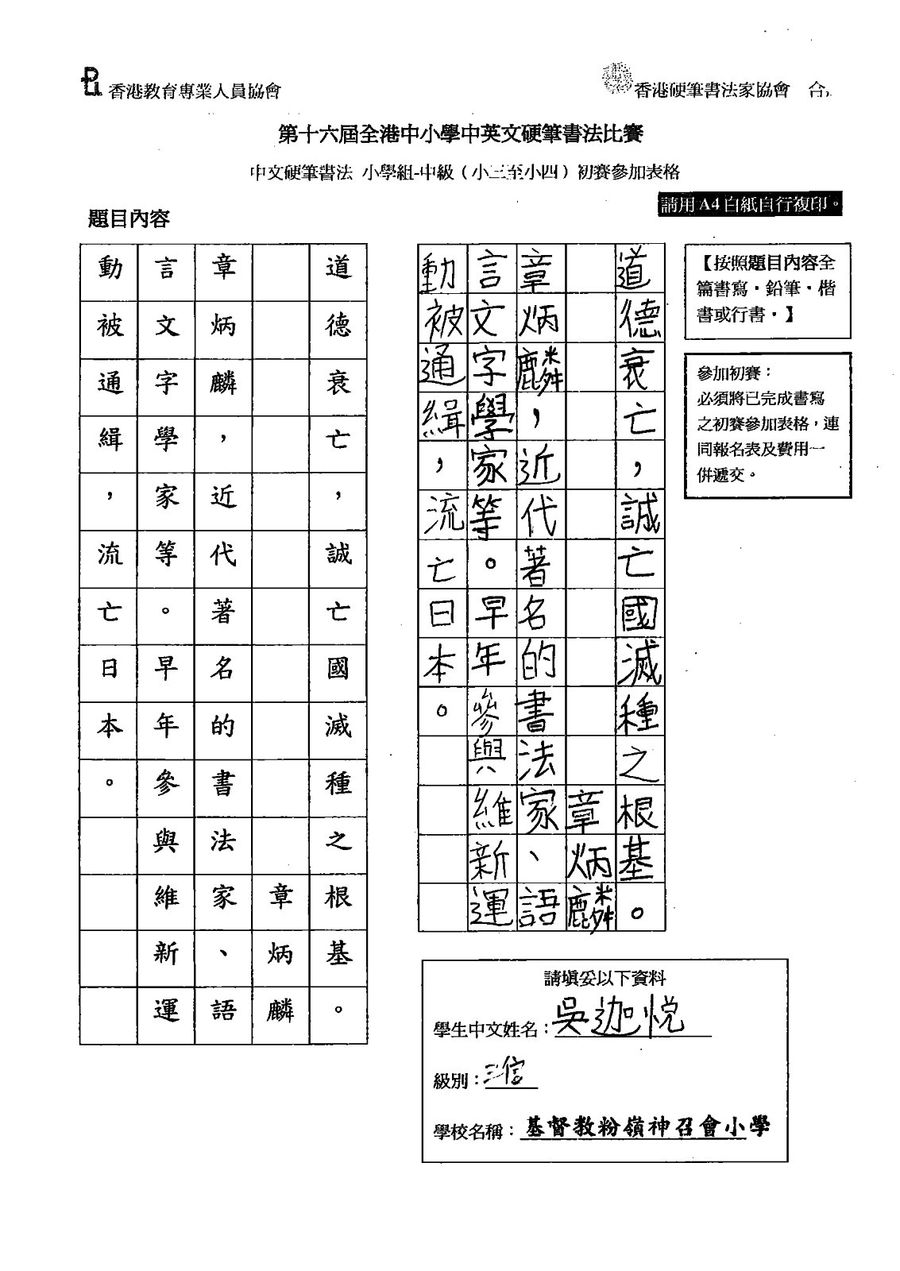 香港教育專業人員協會
香港硬筆書法家協會 合
第十六屆全港中小學中英文硬筆書法比賽
中文硬筆書法 小學組-中級（小三至小四）初賽參加表格
請用 A4 白紙自行複印。
題目內容
道德衰亡，誠亡國滅種之根基。
章炳麟
章炳麟，近代著名的書法家、語
言文字學家等。早年參與維新運
動被通緝，流亡日本。
道德衰亡，誠亡國滅種之根基。
章炳麟
章炳麟，近代著名的書法家、語
言文字學家等。早年參與維新運
動被通緝，流亡日本。
【按照題目內容全
篇書寫・鉛筆・楷
書或行書・】
參加初賽：
必須將已完成書寫
之初賽參加表格，連
同報名表及費用一
併遞交。
請填妥以下資料
學生中文姓名：吳迦悅
級別：三信
學校名稱：基督教粉嶺神召會小學